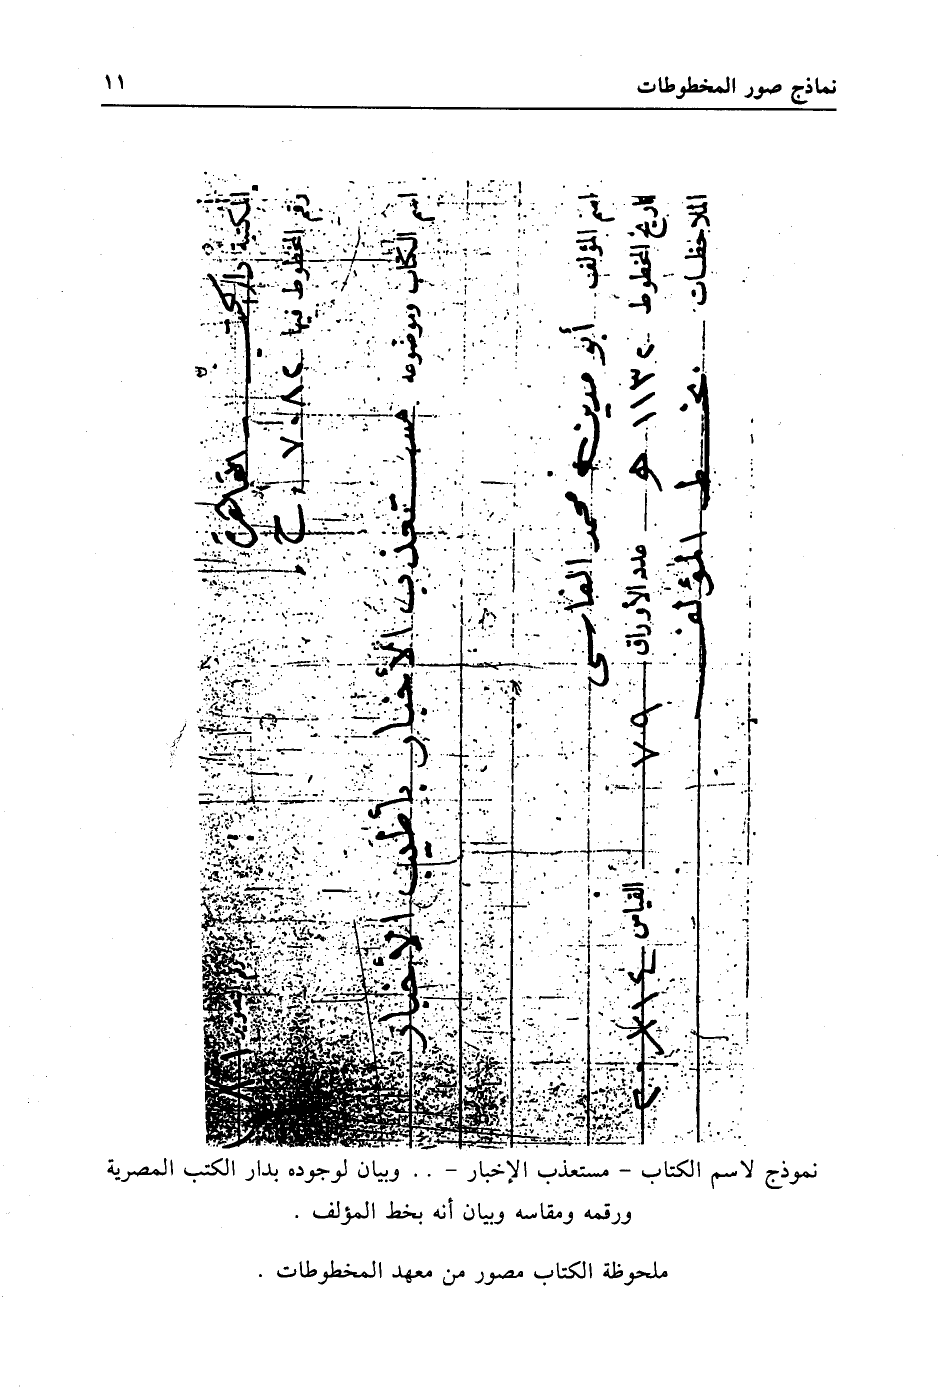 نماذج صور المخطوطات ١١
المكتبة دار الكتب القاهرة
رقم المخطوط فيها ٧٠٨٢ ح
اسم الكتاب وموضوعه مستعذب الأخبار بأطيب الأخبار
اسم المؤلف أبو مدين محمد الفاسي
تاريخ المخطوط ١١٣٢ هـ عدد الأوراق ٧٩ القياس ١٤×٢٠
الملاحظات بخط المؤلف
نموذج لاسم الكتاب – مستعذب الإخبار – .. وبيان لوجوده بدار الكتب المصرية
ورقمه ومقاسه وبيان أنه بخط المؤلف .
ملحوظة الكتاب مصور من معهد المخطوطات .